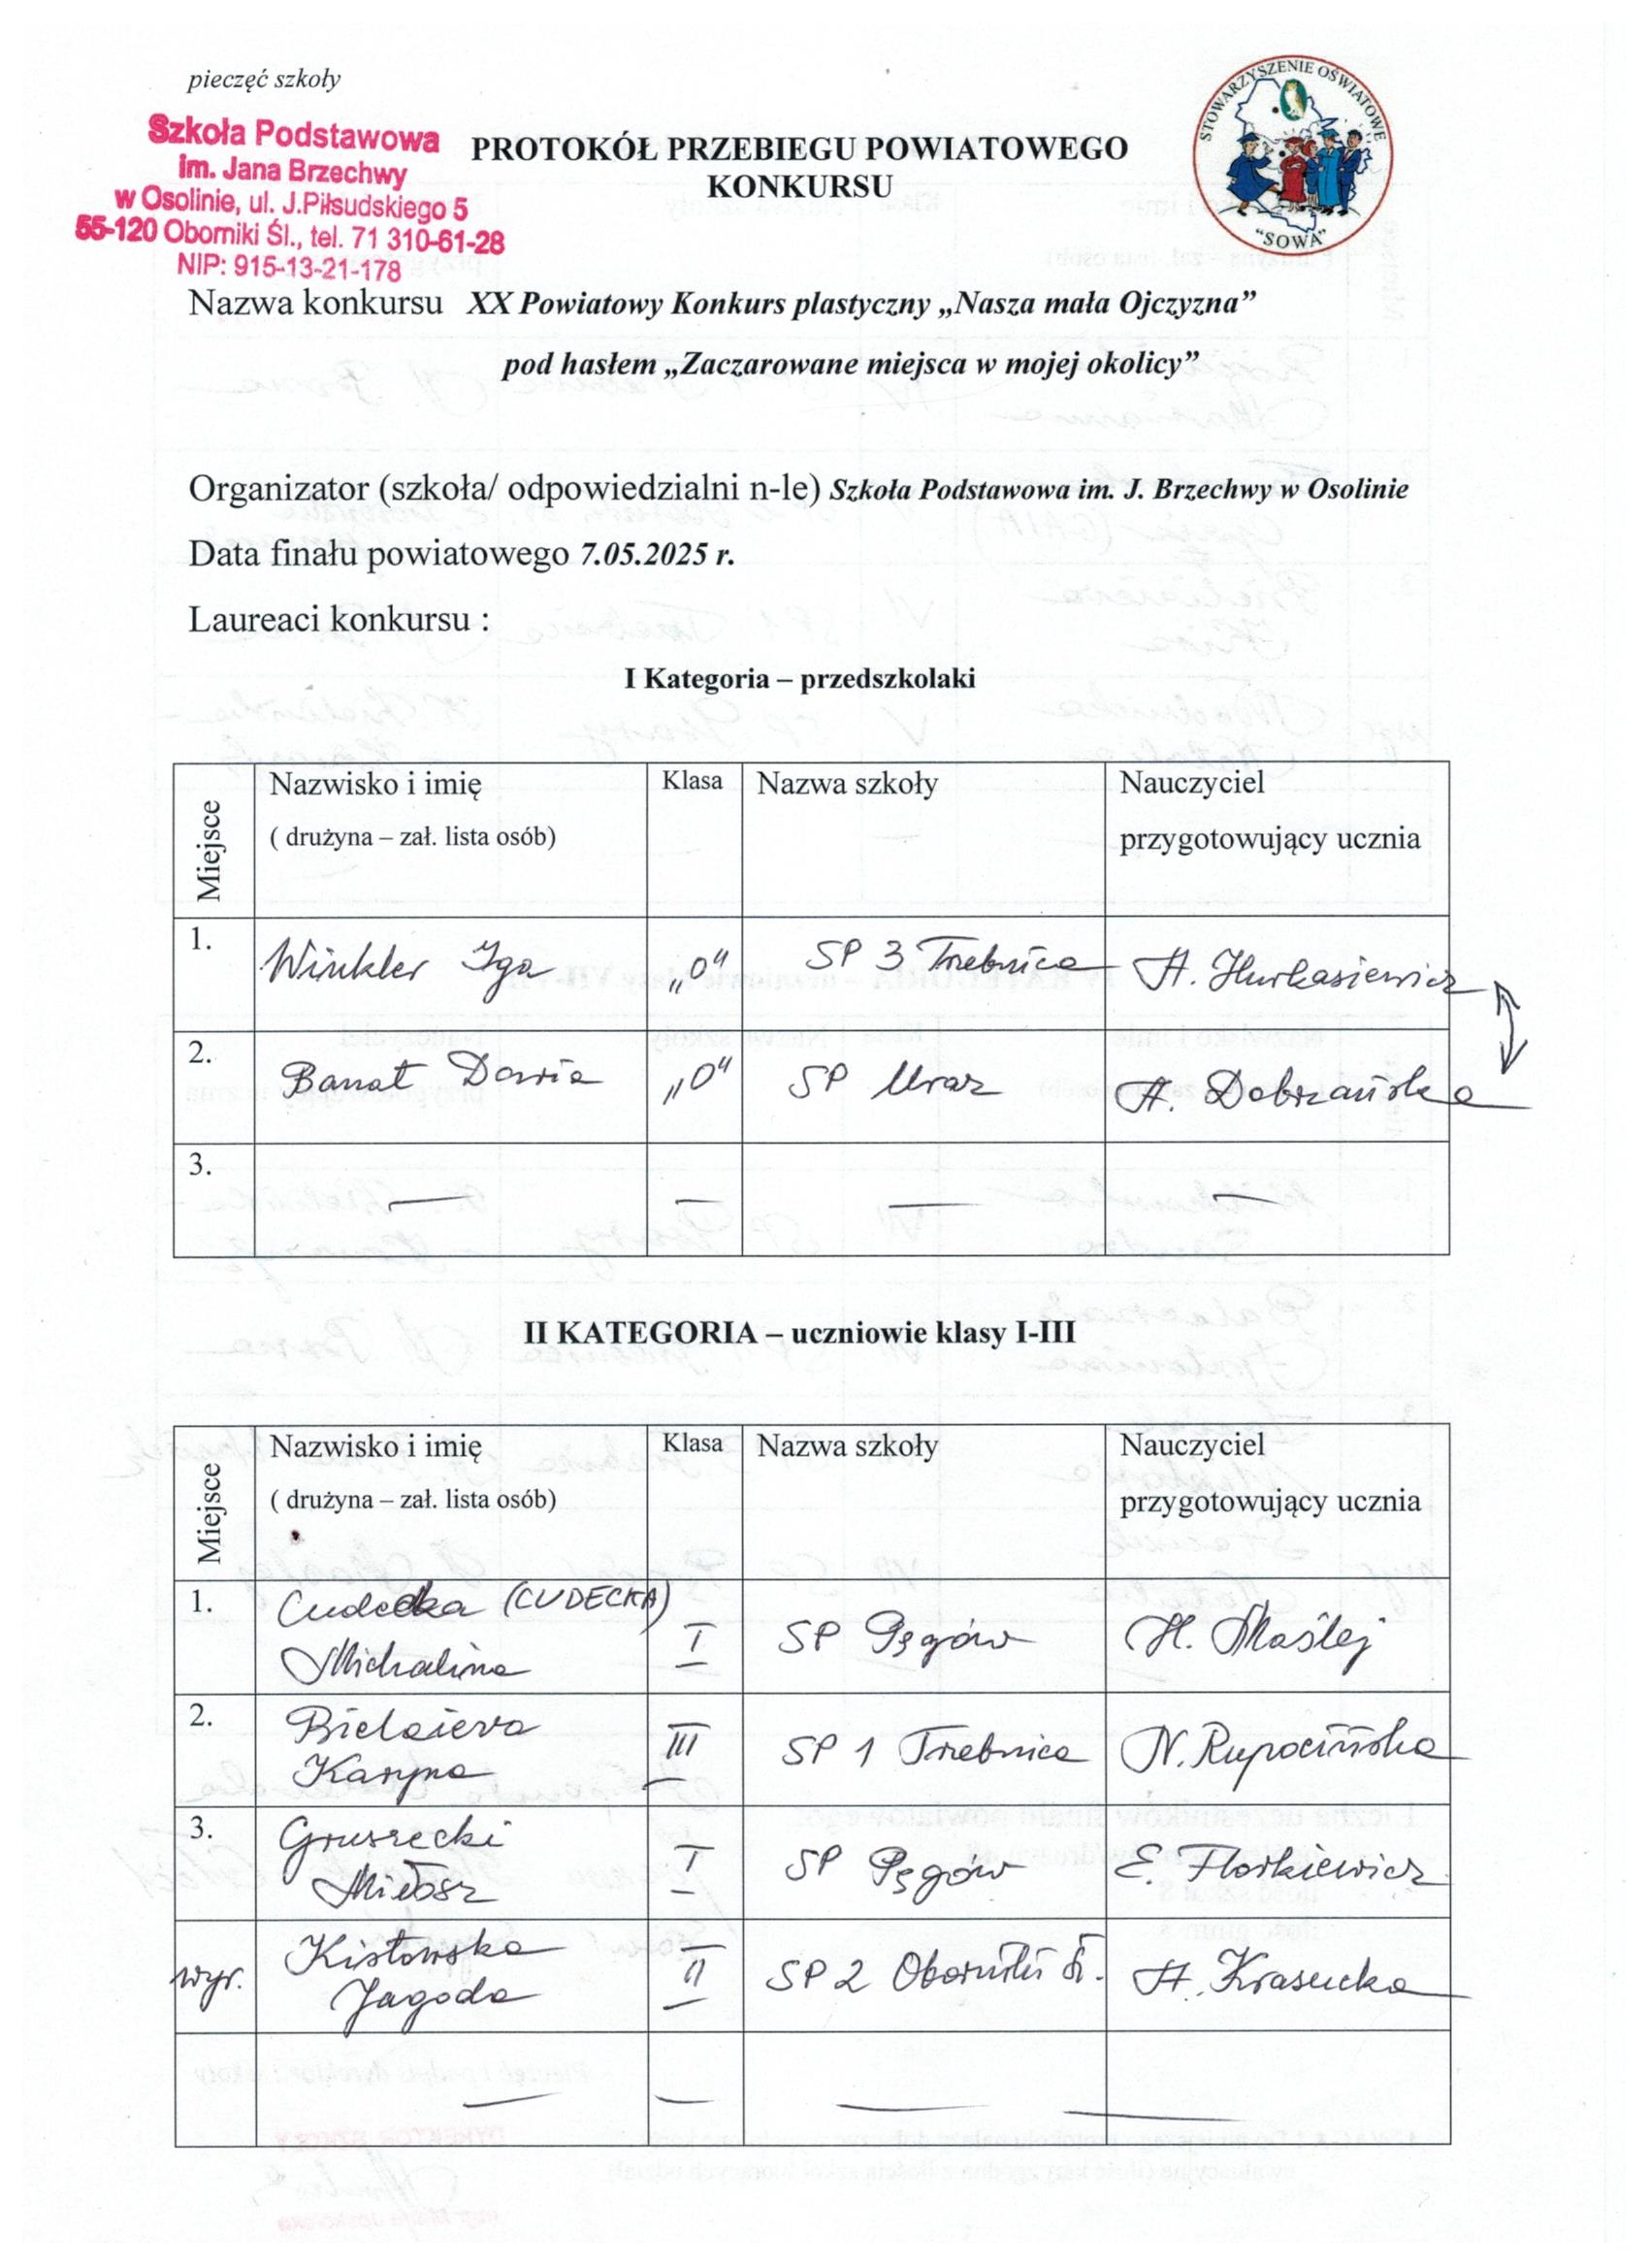 pieczęć szkoły
Szkoła Podstawowa
im. Jana Brzechwy
w Osolinie, ul. J.Piłsudskiego 5
55-120 Oborniki Śl., tel. 71 310-61-28
NIP: 915-13-21-178
PROTOKÓŁ PRZEBIEGU POWIATOWEGO
KONKURSU
STOWARZYSZENIE OŚWIATOWE
"SOWA"
Nazwa konkursu XX Powiatowy Konkurs plastyczny „Nasza mała Ojczyzna”
pod hasłem „Zaczarowane miejsca w mojej okolicy”
Organizator (szkoła/ odpowiedzialni n-le) Szkoła Podstawowa im. J. Brzechwy w Osolinie
Data finału powiatowego 7.05.2025 r.
Laureaci konkursu :
I Kategoria – przedszkolaki
Miejsce Nazwisko i imię Klasa Nazwa szkoły Nauczyciel
( drużyna – zał. lista osób) przygotowujący ucznia
1. Winkler Iga „0” SP 3 Trzebnica A. Hurkasiewicz
2. Banat Daria „0” SP Uraz A. Dobrzańska
3. — — — —
II KATEGORIA – uczniowie klasy I-III
Miejsce Nazwisko i imię Klasa Nazwa szkoły Nauczyciel
( drużyna – zał. lista osób) przygotowujący ucznia
1. Cudecka (CUDECKA)
Michalina I SP Pęgów H. Maślej
2. Bielaieva
Karyna III SP 1 Trzebnica N. Rupocińska
3. Gruszecki
Miłosz I SP Pęgów E. Florkiewicz
wyr. Kistowska
Jagoda II SP 2 Oborniki Śl. A. Krasucka
— — — —